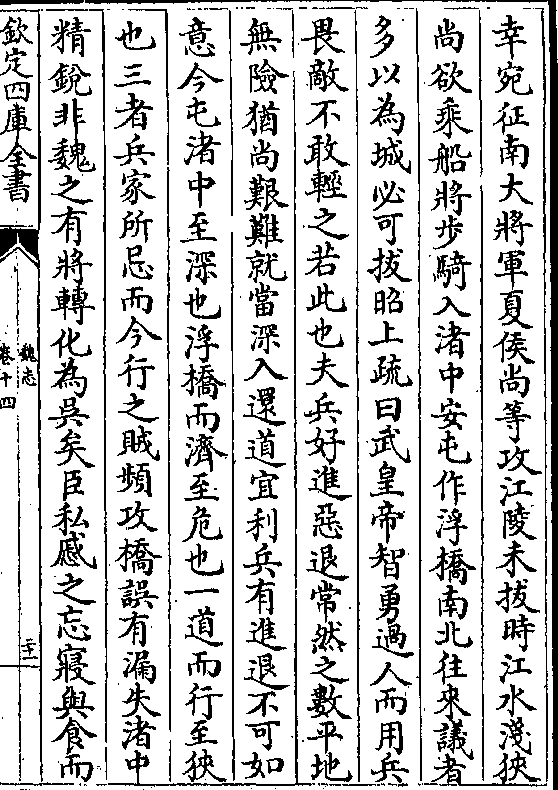 幸宛征南大將軍夏侯尚等攻江陵未拔時江水淺狹
尚欲乘船將步騎入渚中安屯作浮橋南北往來議者
多以為城必可拔昭上疏曰武皇帝智勇過人而用兵
畏敵不敢輕之若此也夫兵好進惡退常然之數平地
無險猶尚艱難就當深入還道宜利兵有進退不可如
意今屯渚中至深也浮橋而濟至危也一道而行至狹
也三者兵家所忌而今行之賊頻攻橋誤有漏失渚中
精銳非魏之有將轉化為吳矣臣私慼之忘寢與食而
欽定四庫全書
魏志
卷十四
二十一